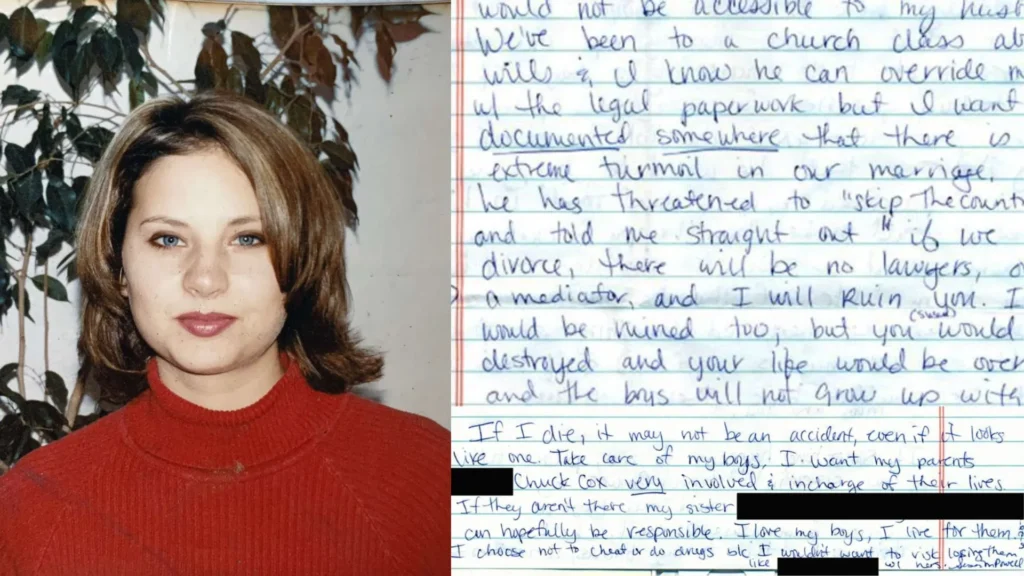 would not be accessible to my husb
We've been to a church class ab
wills & I know he can override m
w/ the legal paperwork but I want
documented somewhere that there is
extreme turmoil in our marriage.
he has threatened to "skip the count
and told me straight out "if we
divorce, there will be no lawyers, o
a mediator, and I will Ruin you. I
(susan)
would be ruined too, but you would
destroyed and your life would be over
and the boys will not grow up with
If I die, it may not be an accident, even if it looks
like one. Take care of my boys. I want my parents
Chuck Cox very involved & incharge of their lives
If they aren't there my sister
can hopefully be responsible. I love my boys, I live for them &
I choose not to cheat or do drugs b/c I wouldn't want to risk losing them
like w/ hers.